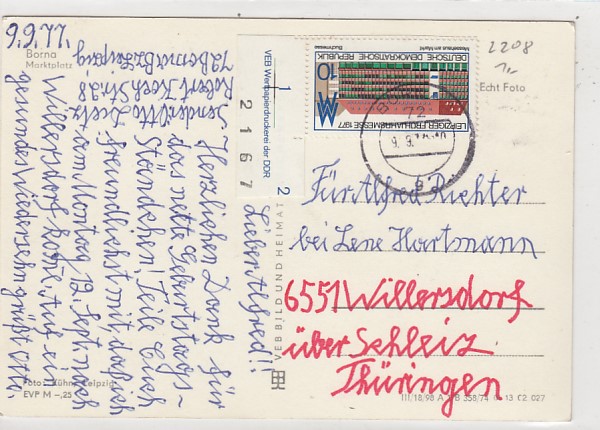 9.9.77.
Borna
Marktplatz
Sendr. Otto Dietz
Robert Koch Str. 28
72 Borna Bz Leipzig
Lieber Alfred!!
Herzlichen Dank für
das nette Geburtstags-
Ständchen! Teile Euch
freundlichst mit, daß ich
am Montag 12. Sept. nach
Willersdorf komme. Auf ein
gesundes Wiedersehn grüßt Otto.
Foto: Kühn, Leipzig
EVP M –,25
VEB BILD UND HEIMAT
VEB Wertpapierdruckerei der DDR
1
2
2 1 6 7
Messehaus am Markt
Buchmesse
DEUTSCHE DEMOKRATISCHE
REPUBLIK
10
LEIPZIGER FRÜHJAHRSMESSE 1977
72
9.9.
2208
1,-
Echt Foto
Für Alfred Richter
bei Lene Hartmann
6551 Willersdorf
über Schleiz
Thüringen
III/18/98 A 1/B 358/74 01 13 02 027